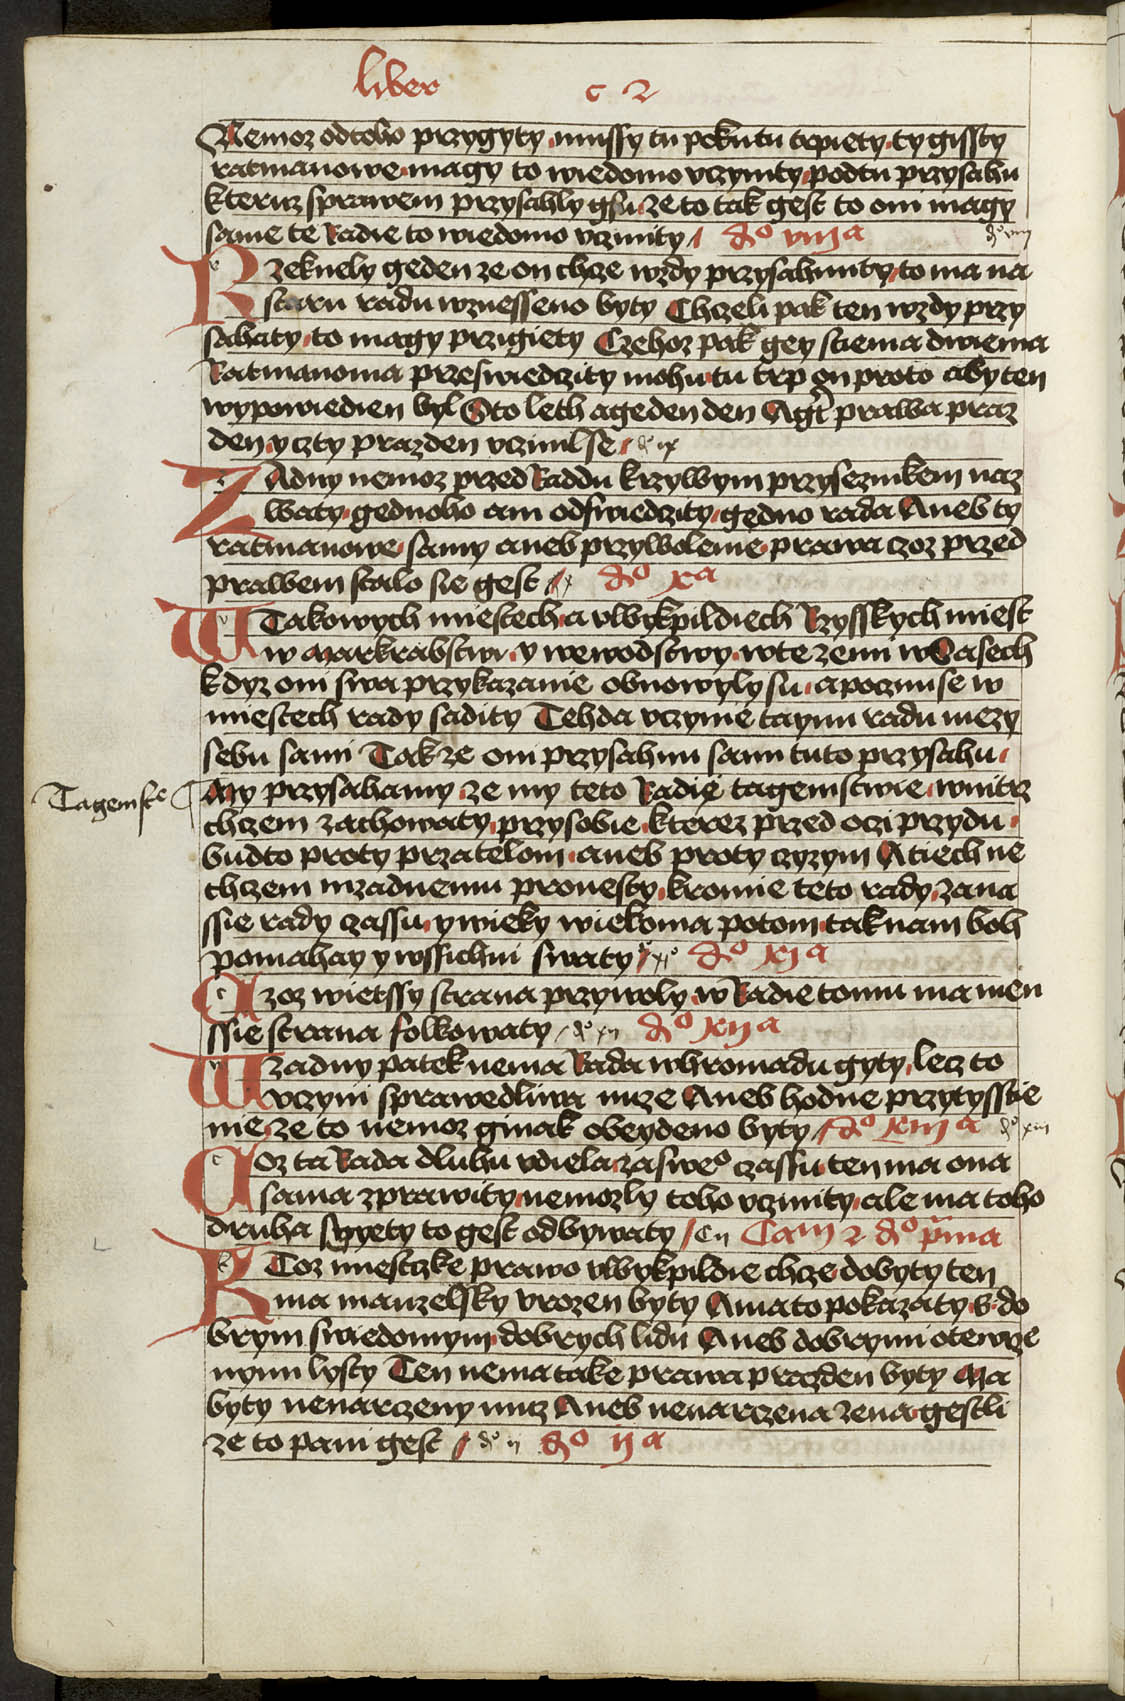 liber c 2
Nemoz odtoho przygyty mussy tu pokutu trpiety ty gissty
ratmanowe magy to wiedomo vczynity podtu przysahu
kteruz sprawem przysahly gsu ze to tak gest to oni magy
same te Radie to wiedomo vcinity d° viij a
d° viij
Rzeknely geden ze on chze wzdy przysahnuty to ma na
staru radu wznesseno byty Chzeli pak ten wzdy przy
sahaty to magy przigiety Czehoz pak gey stiema dwiema
Ratmanoma przeswiedczity mohu tu trp on proto aby ten
wypowiedien byl Sto leth a geden den Agt prawa praz
den y czty prazden vcinilse d° ix
ZAdny nemoz przed Raddu krzywym przyseznikem naz
waty gednoho ani odswiedczity gedno rada Aneb ty
ratmanowe samy aneb przywolenie prawa czoz przed
prawem stalo sie gest x d° x a
W Takowych miestech a vlbykpildiech Rzysskych miest
w Markrabstwi y wewodstwy wte zemi w Sasech
kdyz oni swa przykazanie obnowyly su a poczinu se w
miestech rady sadity Tehda vczynie taynu radu mezy
sebu sami Takze oni przysahnu sami tuto przysahu
Tagemstē
My przysahamy ze my teto Radie tagemstwie wnitrz
chczem zachowaty przysobie kterez przed oczi przydu
budto proty przatelom aneb proty czyzym A tiech ne
chczem mzadnemu pronesty kromie teto rady zana
ssie rady czassu y wieky wiekoma potom tak nam boh
pomahay y wssichni swaty xi° d° xi a
Czoz wietssy strana przywoly w Radie tomu ma men
ssie strana folkowaty d° xii d° xij a
W zadny patek nema Rada whromadu gyty lecz to
vczyni sprawedliwa nuze Aneb hodne przytyssnie
nie ze to nemoz ginak obeydeno byty d° xiij a
d° xiii
COz ta Rada dluhu vdiela za swe° czassu ten ma ona
sama zprawity nemozly toho vcinity ale ma toho
druha spyety to gest odbywaty C ij Cam 2 d° pma
KToz miestczke prawo vlbykpildie chze dobyty ten
ma manzelsky vrozen byty A ma to pokazaty s do
brym swiedomym dobrych lidu Aneb dobrymi otewrze
nymi lysty Ten nema take prawa prazden byty Ma
byty nenarczeny muz Aneb nenarczena zena gestli
ze to pani gest d° ii d° ij a